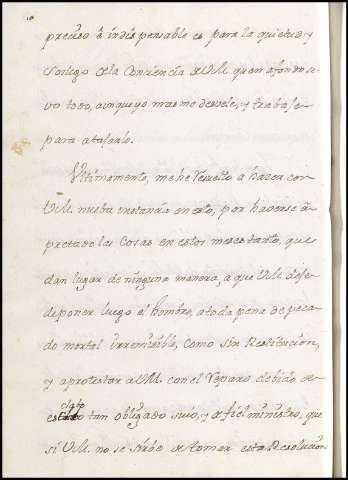 preciso è indispensable es para la quietud y
Sosiego de la Conciencia de V.M. quan afondo se
vo todo, aunque yo mas me desvele, y trabaje
para atajarlo.
Ultimamente, me he resuelto a hazer con
V.M. nueba instancia en esto, por haverse a
pretado las Cosas en estos meses tanto, que
dan lugar de ninguna manera, a que V.M. deje
de poner luego el hombro, a toda pena de peca
do mortal irremisible, como sin Restitucion,
y aprotestar a V.M. con el reparo debido de
esclabo tan obligado suio, y de fiel ministro, que
si V.M. no se sirbe de tomar esta Resolucion